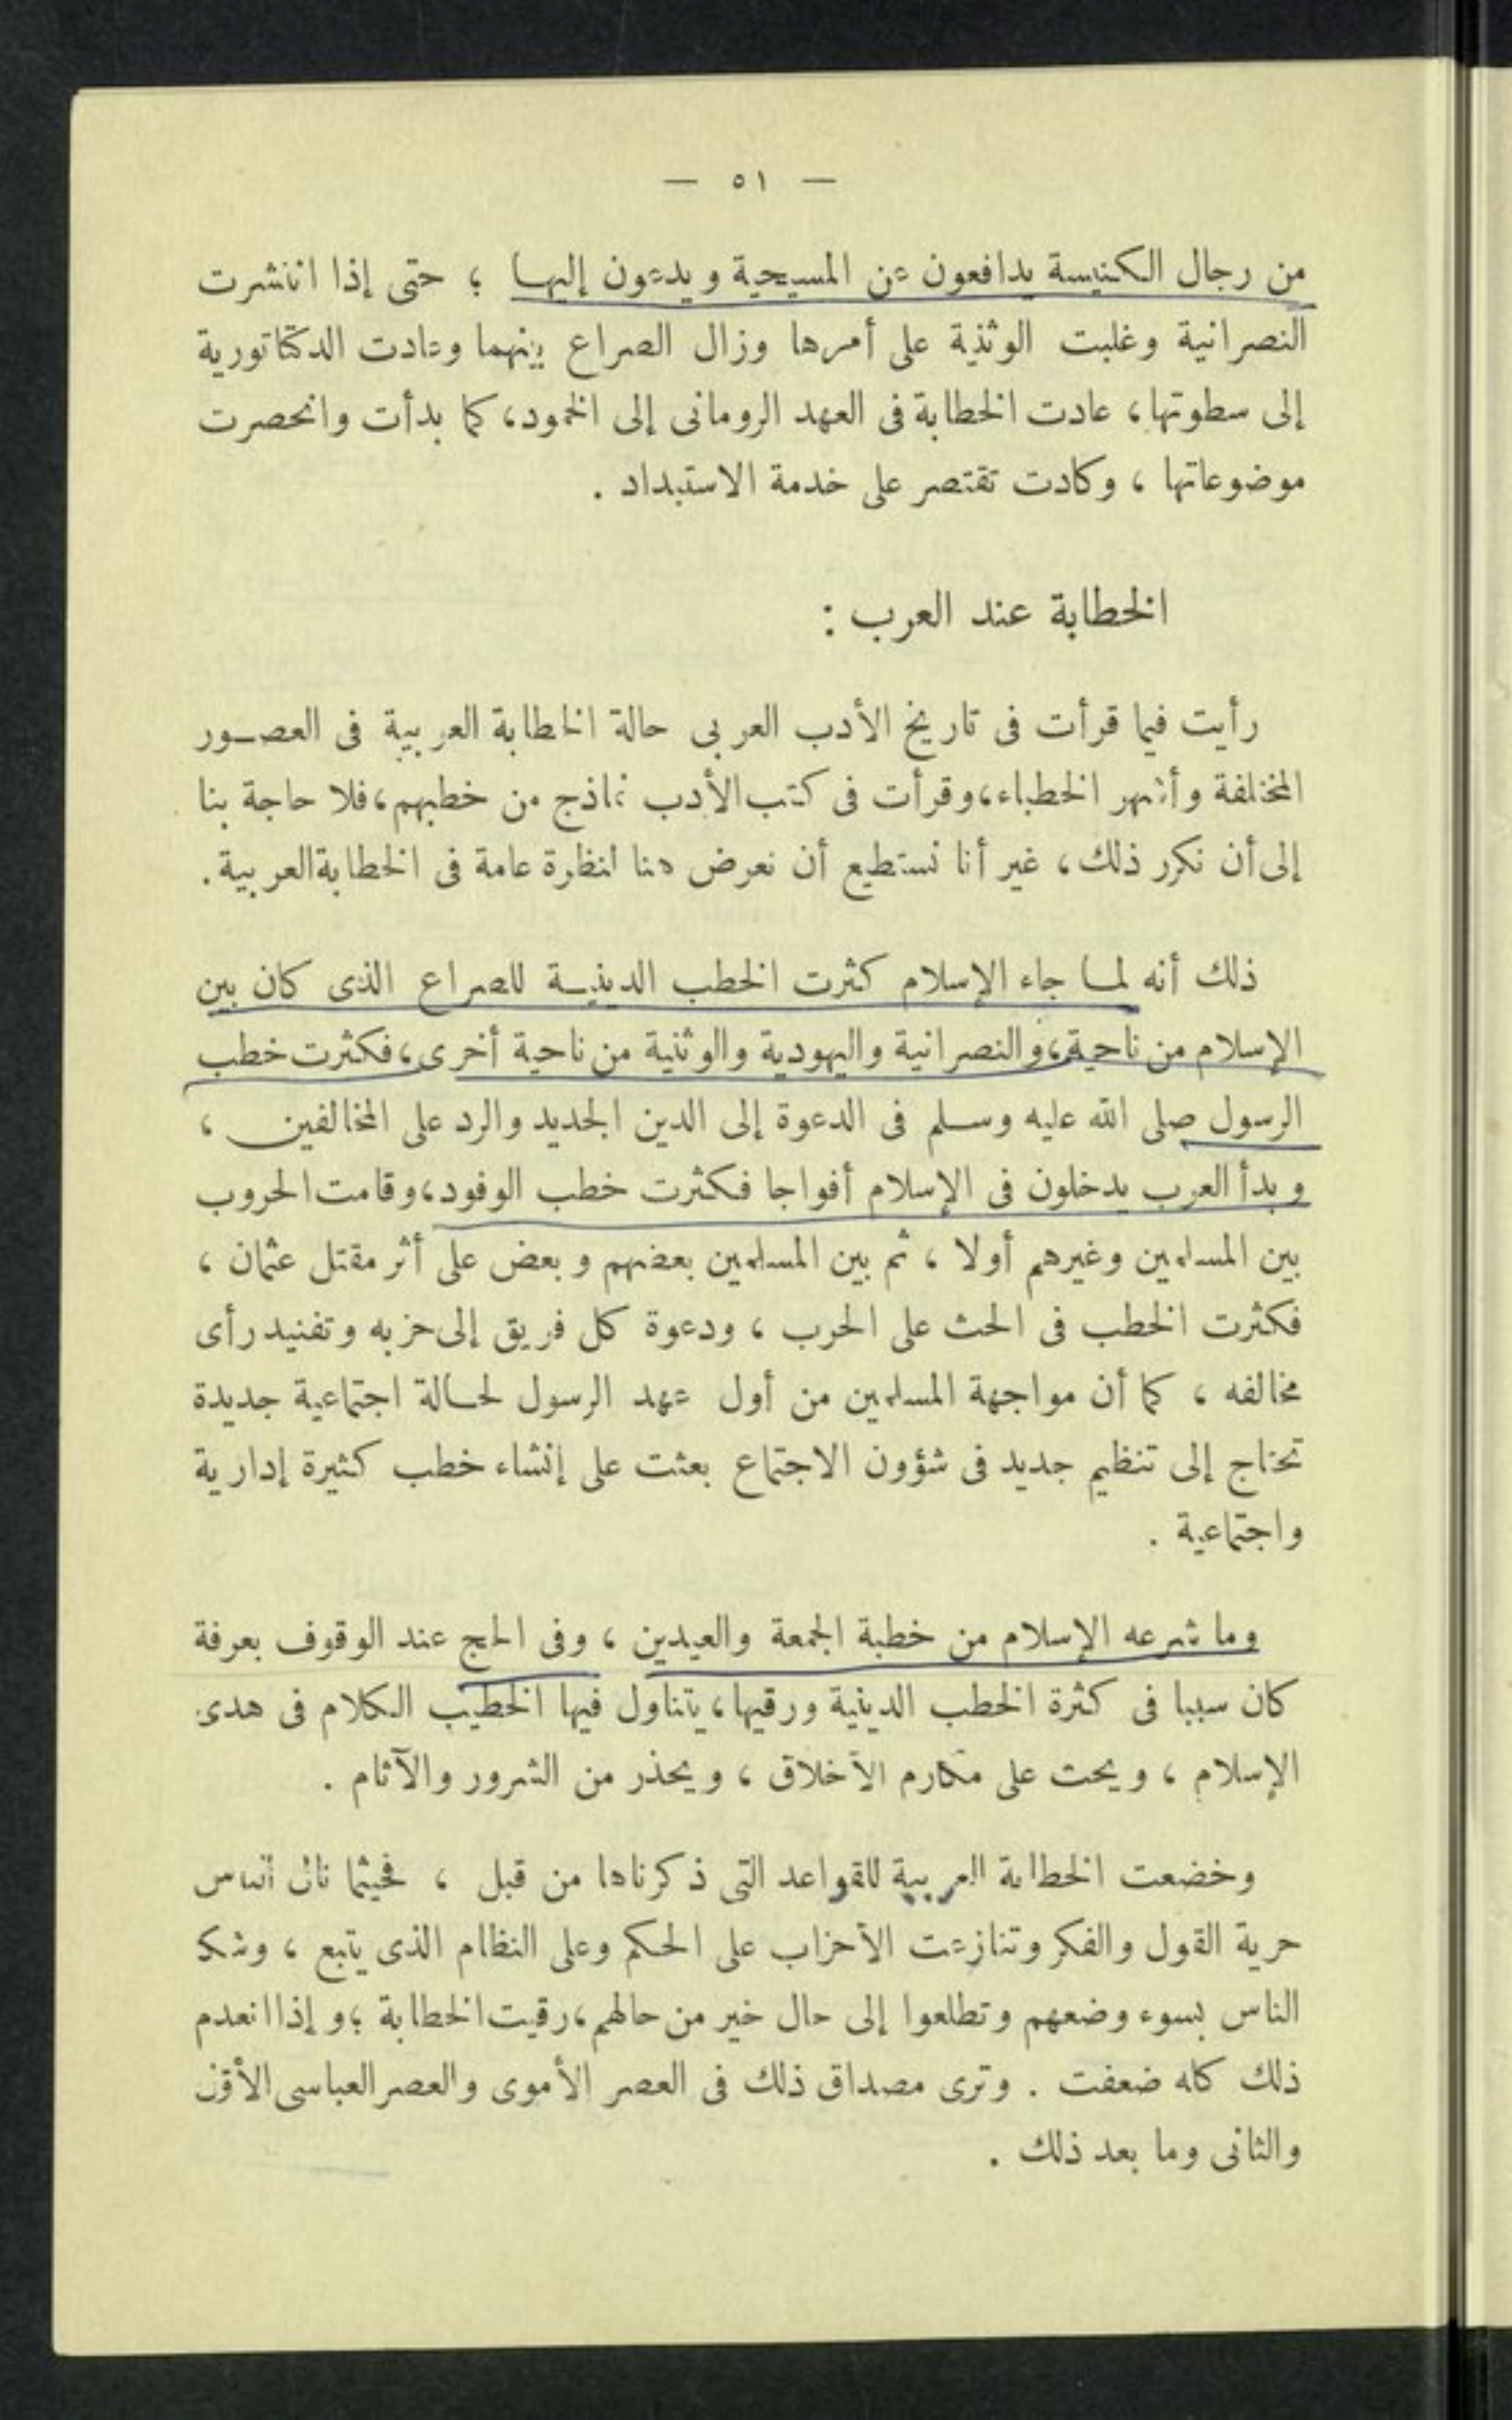 — ٥١ —
من رجال الكنيسة يدافعون عن المسيحية ويدعون إليها ؛ حتى إذا انتشرت
النصرانية وغلبت الوثنية على أمرها وزال الصراع بينهما وعادت الدكتاتورية
إلى سطوتها، عادت الخطابة فى العهد الرومانى إلى الخمود، كما بدأت وانحصرت
موضوعاتها ، وكادت تقتصر على خدمة الاستبداد .
الخطابة عند العرب :
رأيت فيما قرأت فى تاريخ الأدب العربى حالة الخطابة العربية فى العصور
المختلفة وأشهر الخطباء، وقرأت فى كتب الأدب نماذج من خطبهم، فلا حاجة بنا
إلى أن نكرر ذلك، غير أنا نستطيع أن نعرض هنا لنظرة عامة فى الخطابة العربية.
ذلك أنه لما جاء الإسلام كثرت الخطب الدينية للصراع الذى كان بين
الإسلام من ناحية، والنصرانية واليهودية والوثنية من ناحية أخرى، فكثرت خطب
الرسول صلى الله عليه وسلم فى الدعوة إلى الدين الجديد والرد على المخالفين ،
وبدأ العرب يدخلون فى الإسلام أفواجا فكثرت خطب الوفود، وقامت الحروب
بين المسلمين وغيرهم أولا ، ثم بين المسلمين بعضهم وبعض على أثر مقتل عثمان ،
فكثرت الخطب فى الحث على الحرب ، ودعوة كل فريق إلى حزبه وتفنيد رأى
مخالفه ، كما أن مواجهة المسلمين من أول عهد الرسول لحالة اجتماعية جديدة
تحتاج إلى تنظيم جديد فى شؤون الاجتماع بعثت على إنشاء خطب كثيرة إدارية
واجتماعية .
وما شرعه الإسلام من خطبة الجمعة والعيدين ، وفى الحج عند الوقوف بعرفة
كان سببا فى كثرة الخطب الدينية ورقيها، يتناول فيها الخطيب الكلام فى هدى
الإسلام ، ويحث على مكارم الأخلاق ، ويحذر من الشرور والآثام .
وخضعت الخطابة العربية للقواعد التى ذكرناها من قبل ، فحيثما نال الناس
حرية القول والفكر وتنازعت الأحزاب على الحكم وعلى النظام الذى يتبع ، وشكا
الناس بسوء وضعهم وتطلعوا إلى حال خير من حالهم، رقيت الخطابة ؛ وإذا انعدم
ذلك كله ضعفت . وترى مصداق ذلك فى العصر الأموى والعصر العباسى الأول
والثانى وما بعد ذلك .